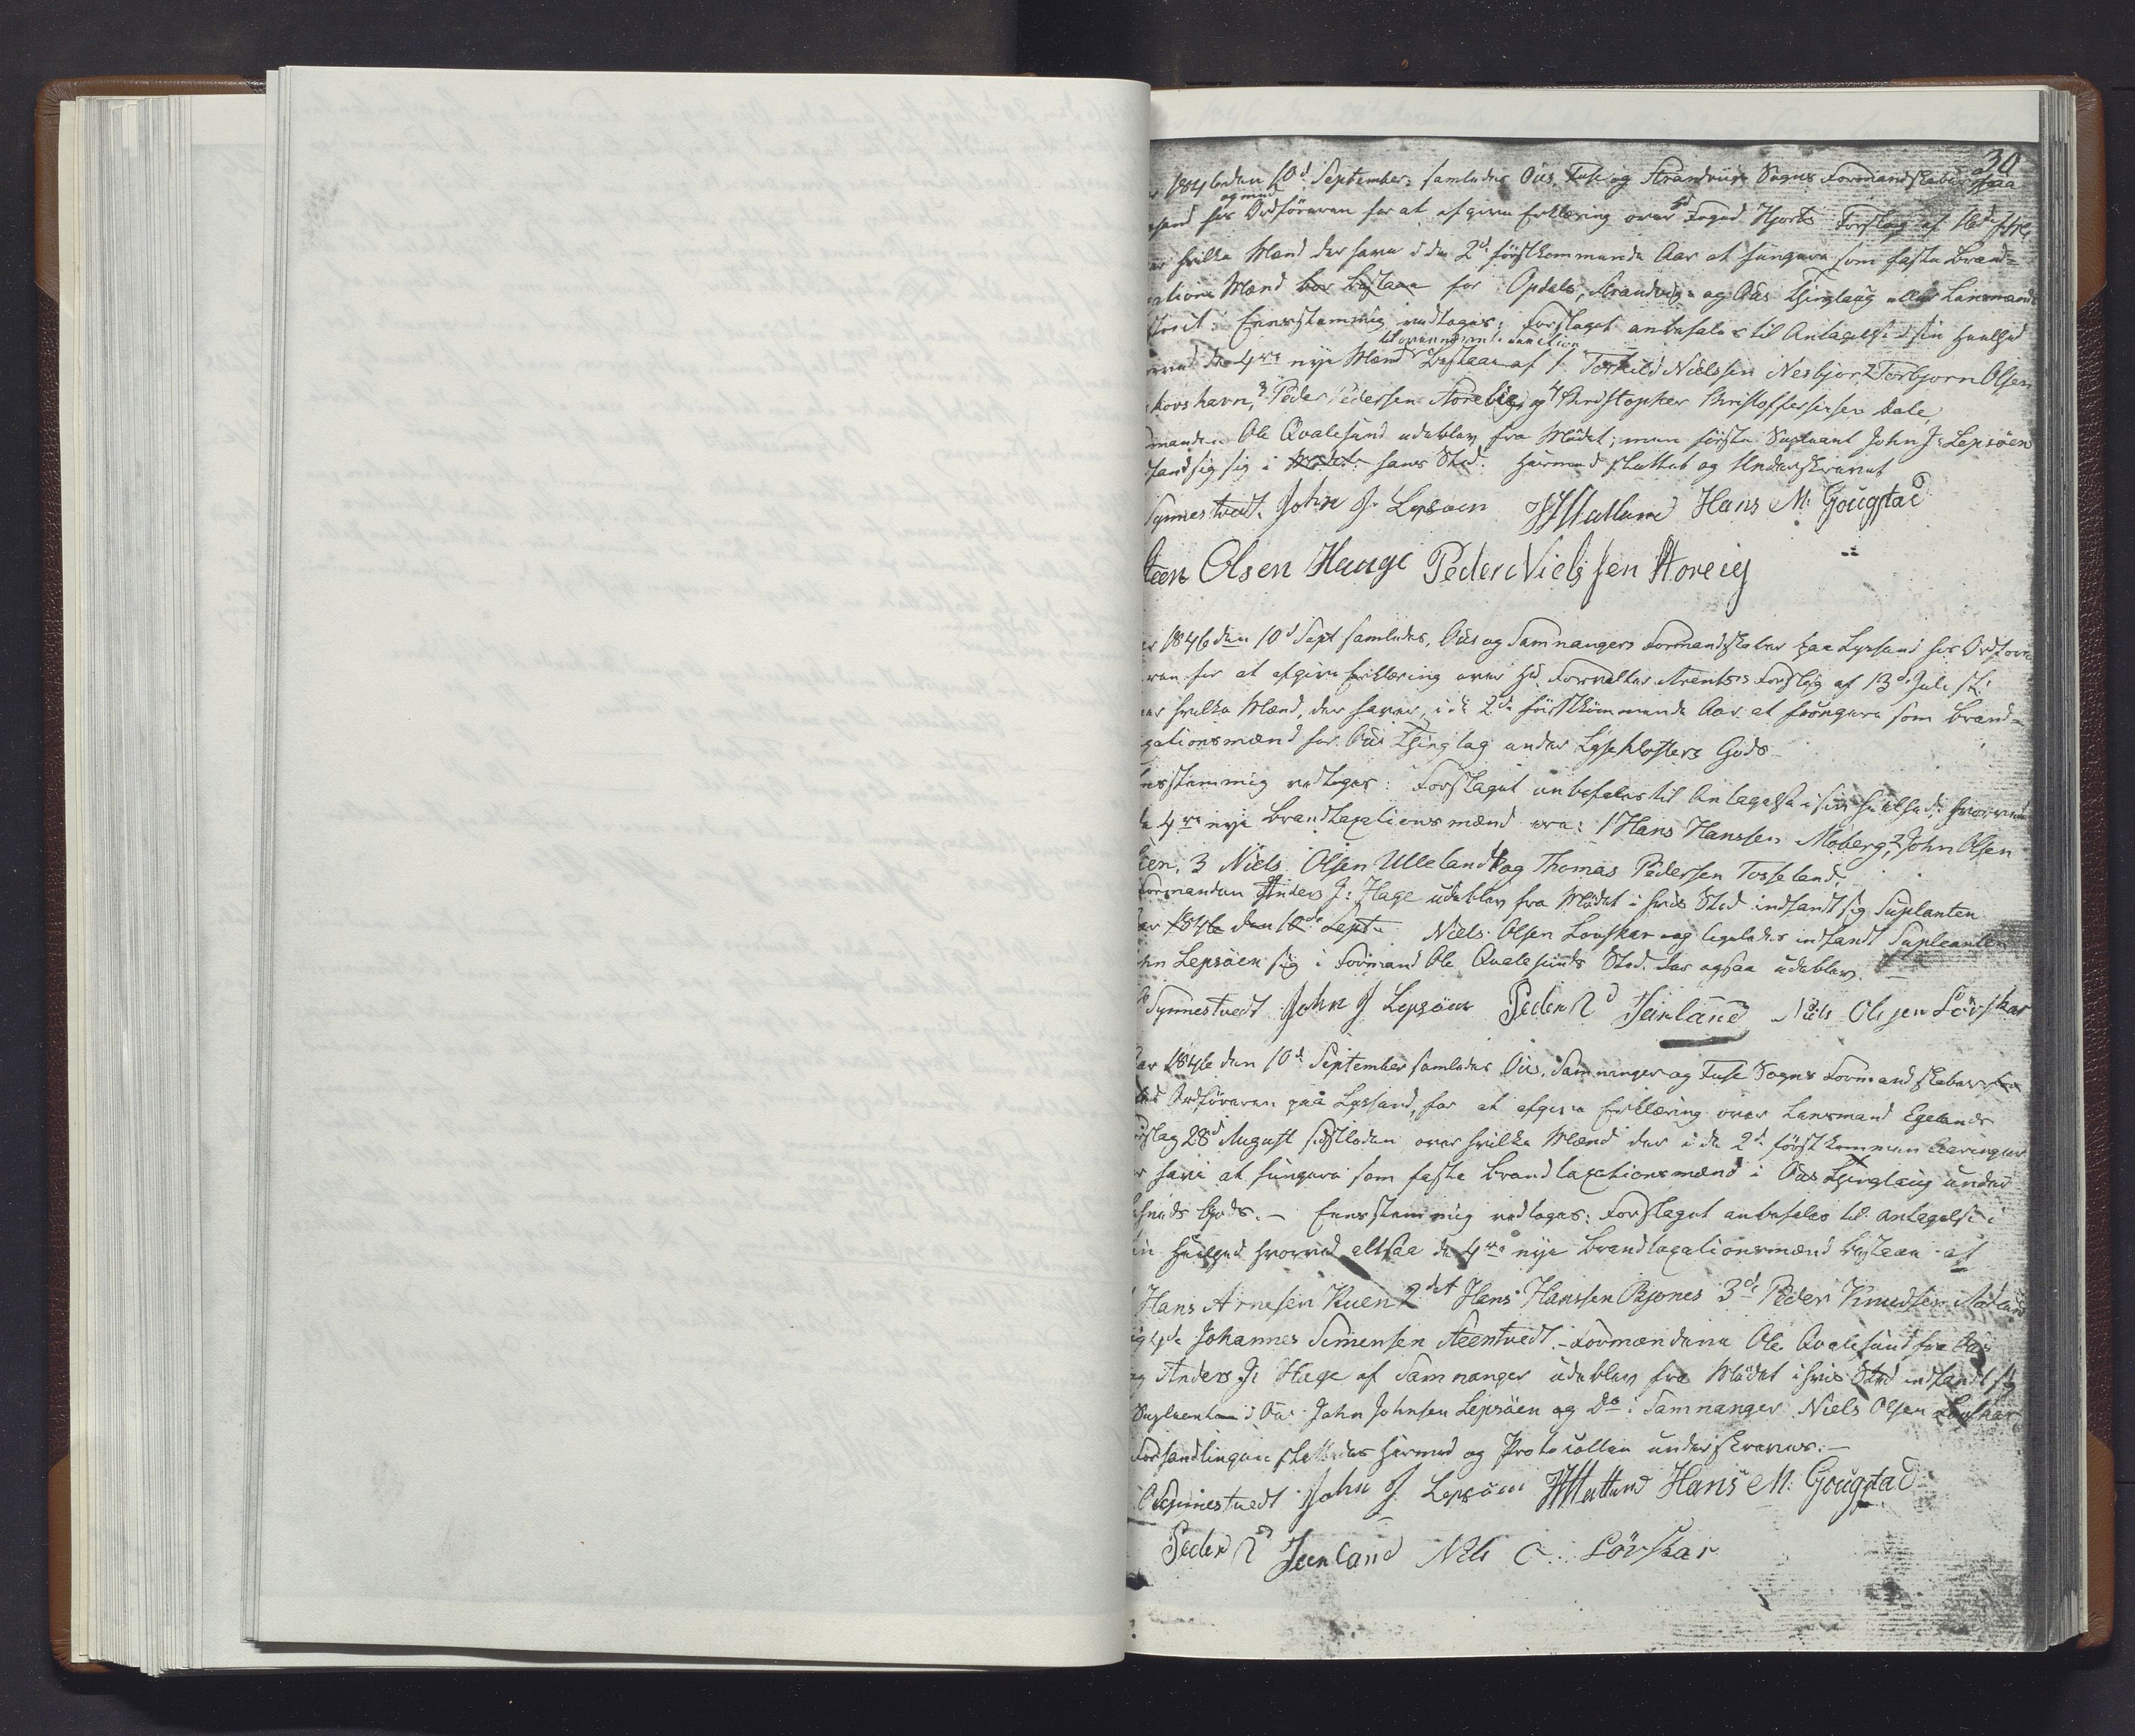 30
1846 den 10d September samledes Ous, Fuse og Strandvigs Sogns Formandskaber paa
og med
hos Ordföreren for at afgive Erklæring over Foged Hjorts Forslag af
hvilke Mænd der have i de 2de förstkommende Aar at fungere som faste Brand=
ations Mænd bör bestaae for Opdals, Strandvigs og Ous Thinglaug Lensmands
Eensstemmig vedtoges: Forslaget anbefales til Antagelse i sin Heelhed
de 4re nye Mænd bestaae af 1 Torkild Nielssen Nesbjor 2 Torbjorn Olsen
havn, 3 Peder Pedersen Storelie, og 4 Christopher Christoffersen Dale,
manden Ole Qvalesund udeblev fra Mödet; men förste Supleant John J: Lepsöen
sig i Mödet hans Sted. Hermed sluttet og Underskrevet
Synnestvedt. John J. Lepsöen Hans M: Gougstad
Olsen Hauge Peder Nielssen Storeig
1846 den 10d Sept samledes, Ous og Samnangers Formandskaber paa Lyssand hos Ordföre
ren for at afgive Erklæring over Hd Forvalter Arentses Forslag af 13de Juli
hvilke Mænd, der haver, i de 2de förstkommende Aar at foungere som Brand=
gationsmænd for Ous Thinglag under Lysekloster Gods
stemmig vedtoges: Forslaget anbefales til Antagelse i sin Heelhed; hvorved
4re nye Brandtaxationsmænd ere: 1 Hans Hanssen Moberg, 2 John Olsen
3 Niels Olsen Ulleland 4 og Thomas Pedersen Tosseland,
Formanden Anders J: Hage udeblev fra Mödet i hvis Sted indfandt sig Suplanten
1846 den 10de Sept Niels Olsen Lovskar og ligeledes indfandt Supleanten
Lepsöen sig i Formand Ole Qvalesunds Sted. der ogsaa udeblev.
Synnestvedt John J Lepsöen Peder Niels Olssen Lövskar
1846 den 10de September samledes Ous, Samnanger og Fuse Sogns Formandskaber
Ordföreren paa Lyssand, for at afgive Erklæring over Lensmand Egelands
slag 28d August sidstleden over hvilke Mænd der i de 2de förstkommen Aaringer
have at fungere som faste Brandtaxationsmænd i Ous Thinglaug under
Gods. - Eensstemmig vedtoges: Forslaget anbefales til antagelse i
Heelhed hvorved altsaa de 4re nye Brandtaxationsmænd bestaae af
Hans Arnesen Kuen 2det Hans Hanssen Bjones 3de Peder Knudsen
4de Johannes Simensen Steentvedt. - Formændene Ole Qvalesund fra Ous
og Anders J: Hage af Samnanger udeblev fra Mödet i hvis Sted indfandt sig
Supleanten i Ous John Johnsen Lepsöen og Do i Samnanger Niels Olsen Lovskar
Forhandlingen sluttedes hermed og Protocollen underskreves. -
Synnestvedt John J Lepsöen Hans M: Gougstad
Peder Niels O. Lövskar